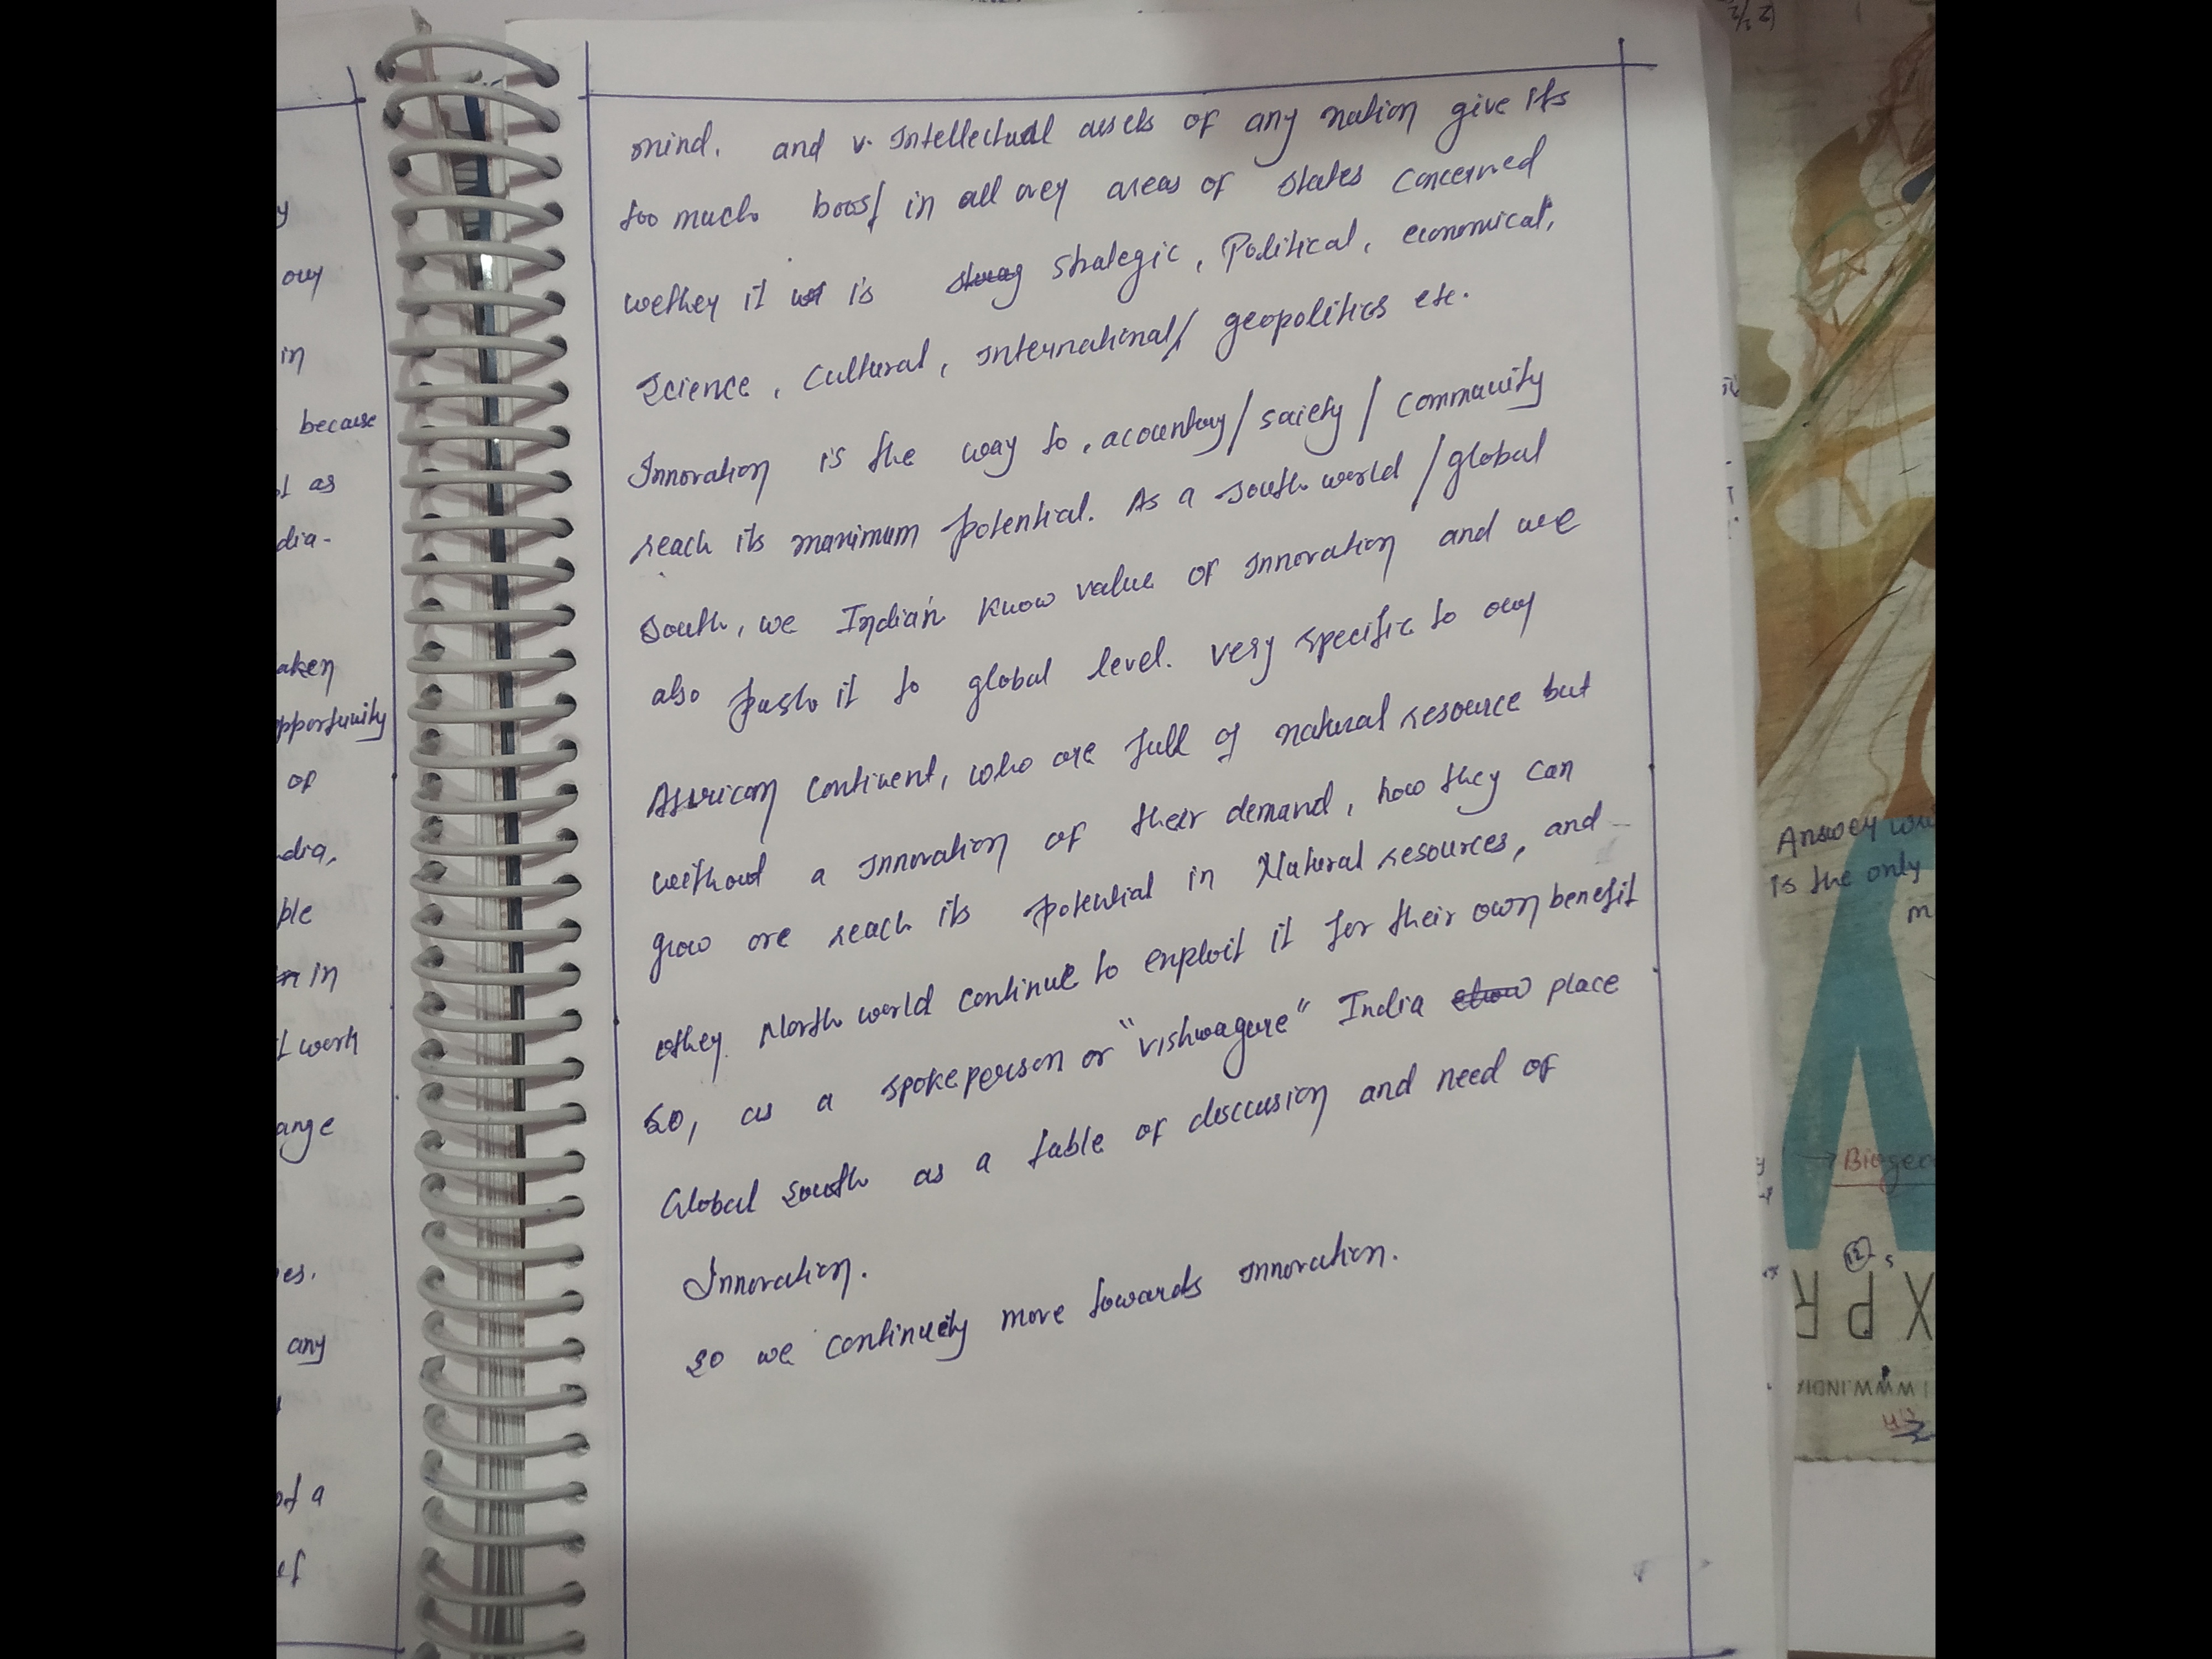 y
our
in
because
t as
dia-
aken
opportunity
of
ndia,
ple
in
t work
ange
es.
any
of a
ef
mind. and v. Intellectual assets of any nation give its
too much boost in all over areas of states concerned
wether it is strategic, Political, economical,
Science, Cultural, International/ geopolitics etc.
Innovation is the way to, acountry/ saiety / Community
reach its maximum potential. As a south world / global
South, we Indian know value of Innovation and we
also push it to global level. very specific to our
African Continent, who are full of natural resource but
without a Innovation of their demand, how they can
grow ore reach its potential in Natural resources, and
other North world continue to exploit it for their own benefit
So, as a spokeperson or "vishwagure" India place
Global South as a table of disccusion and need of
Innovation.
So we continuety move towards Innovation.
Answer wri
is the only
m
→ Biogeo
12
XPR
WWW.INDIA